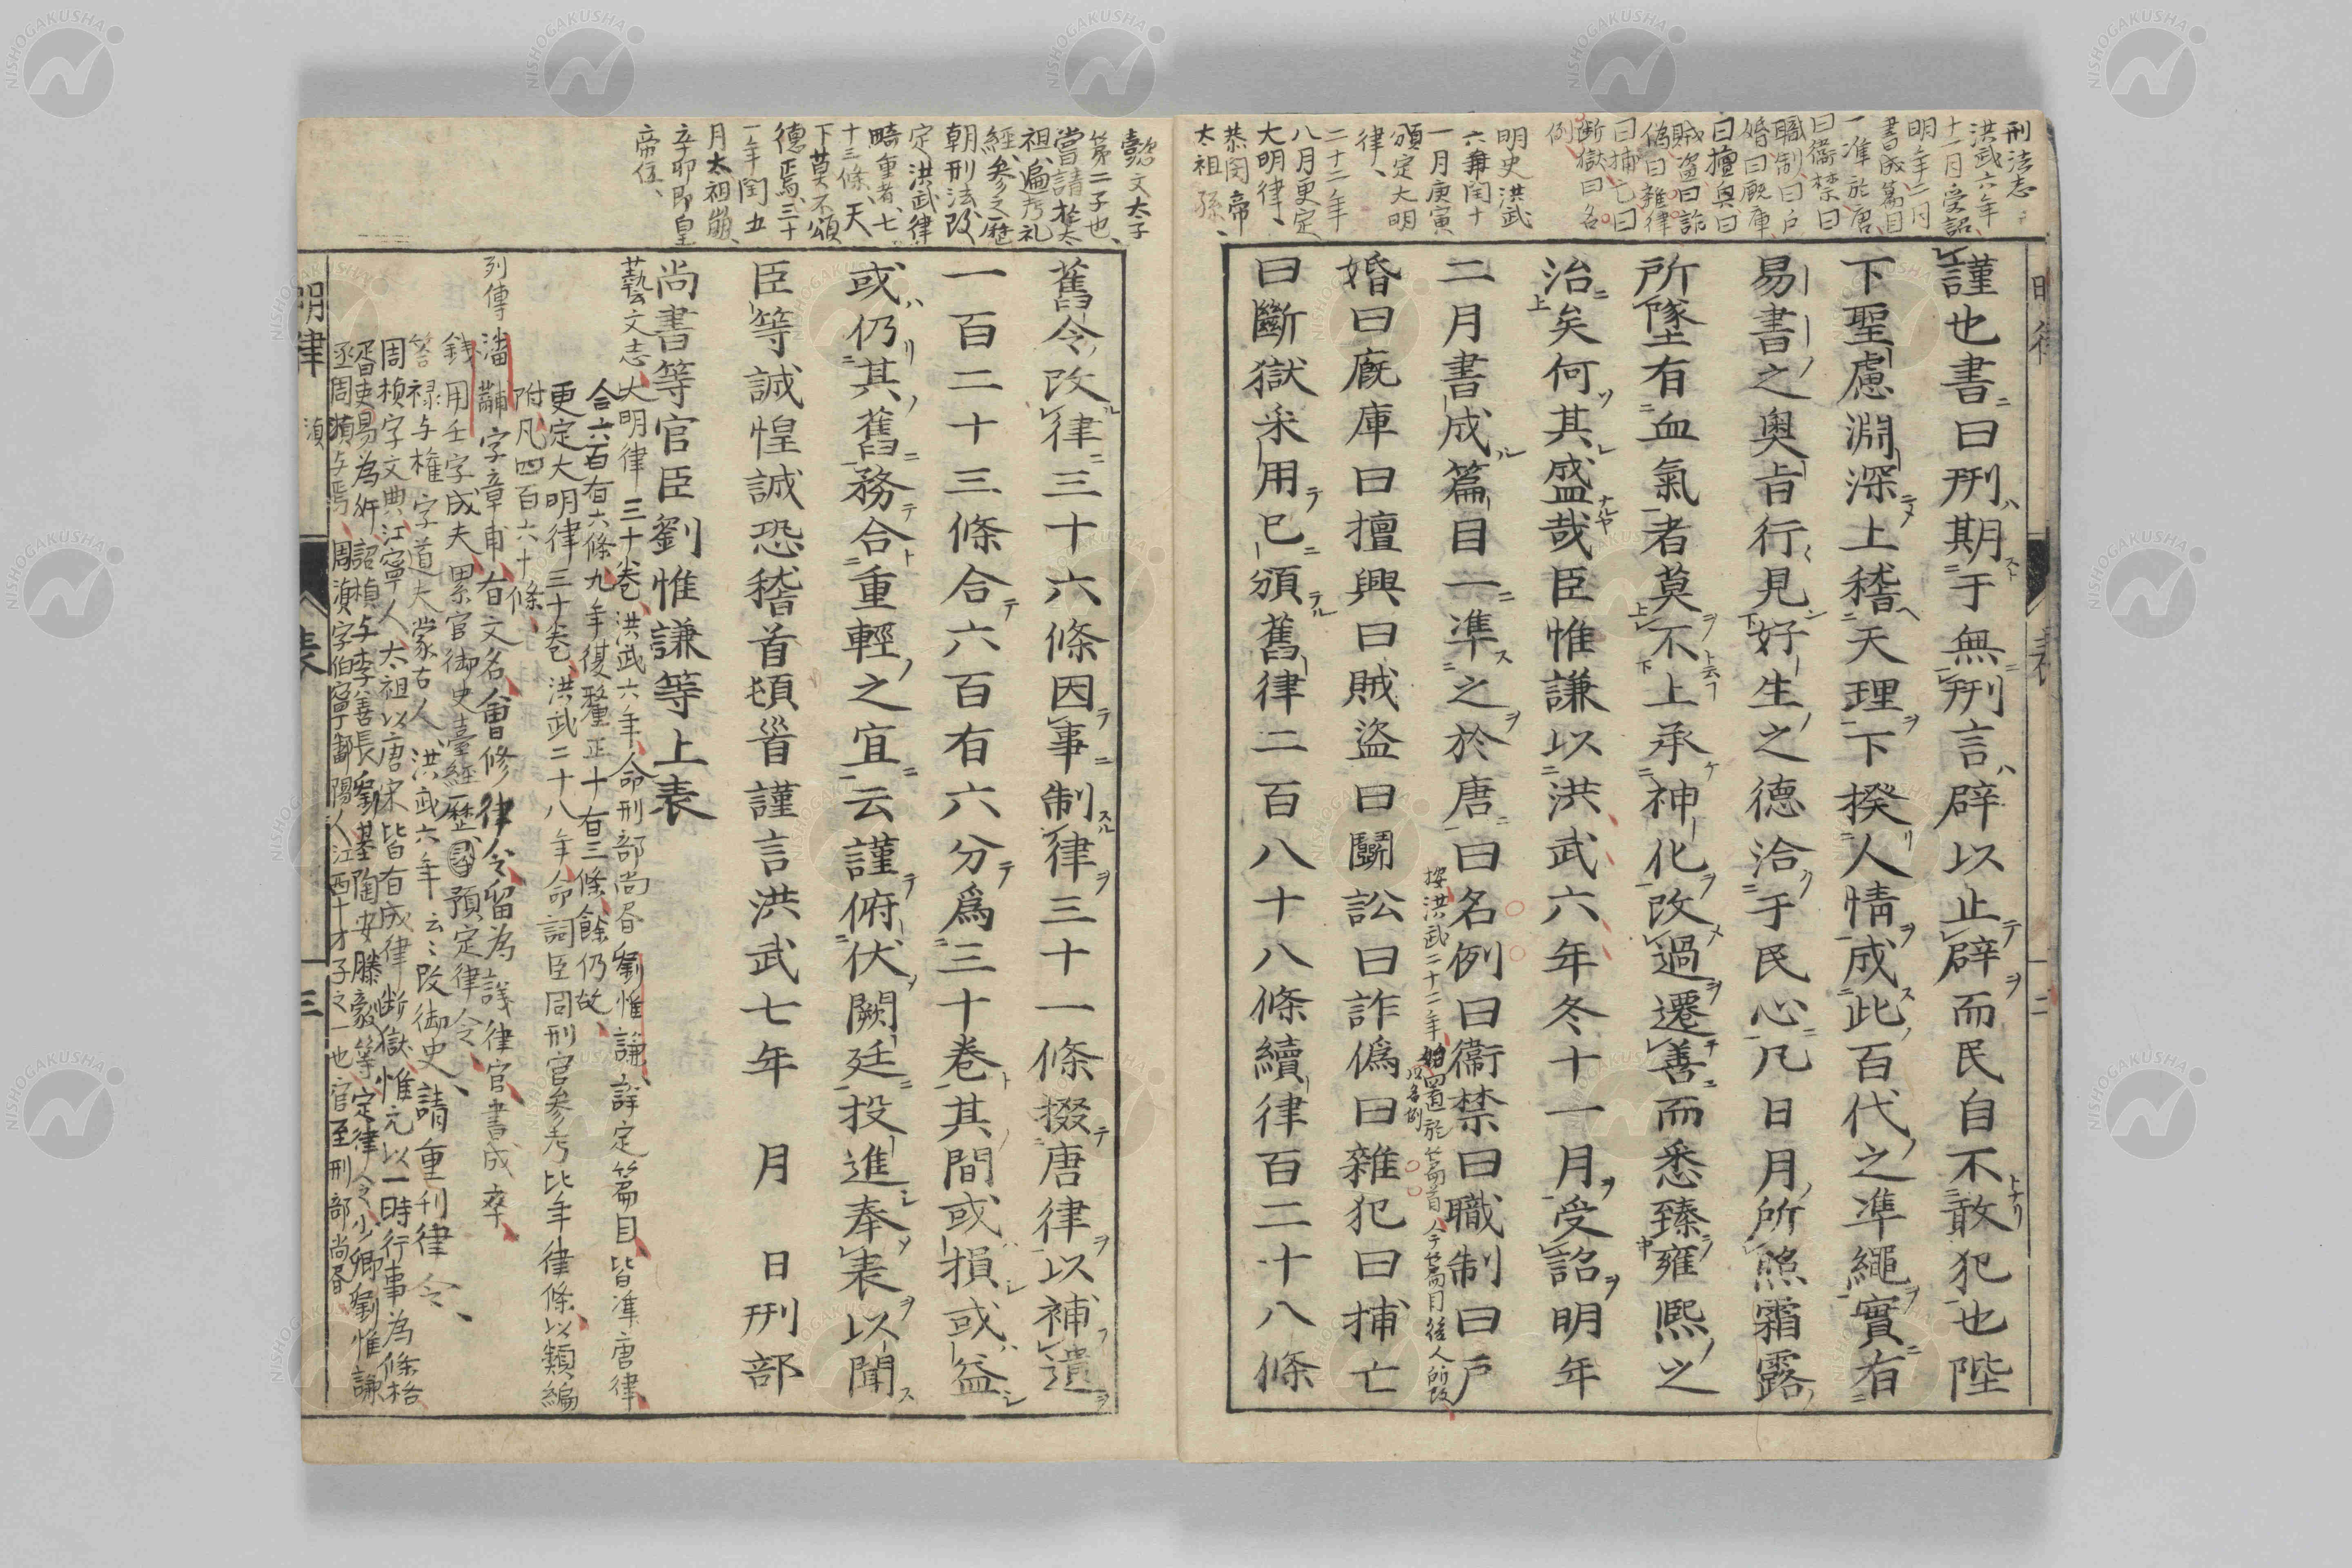 刑法志
洪武六年
十一月受詔
明年二月
書成篇目
一准於唐
曰衛禁曰
職制曰戶
婚曰廐庫
曰擅興曰
賊盜曰詐
偽曰雜律
曰捕亡曰
斷獄曰名
例
明史洪武
六年閏十
一月庚寅
頒定大明
律
二十二年
八月更定
大明律
恭閔帝
太祖孫
謹也書曰刑期于無刑言辟以止辟而民自不敢犯也陛
下聖慮淵深上稽天理下揆人情成此百代之準繩實有
易書之奧旨行見好生之德洽于民心凡日月所照霜露
所墜有血氣者莫不上承神化改過遷善而悉臻雍熙之
治矣何其盛哉臣惟謙以洪武六年冬十一月受詔明年
二月書成篇目一準之於唐曰名例曰衞禁曰職制曰戶
按洪武二十二年始以名例置於篇首今篇目後人所改
婚曰廐庫曰擅興曰賊盜曰鬭訟曰詐僞曰雜犯曰捕亡
曰斷獄采用已頒舊律二百八十八條續律百二十八條
懿文太子
第二子也
嘗請於太
祖遍考礼
經參之歷
朝刑法改
定洪武律
畸重者七
十三條天
下莫不頌
德焉三十
一年閏五
月太祖崩
辛卯即皇
帝位
舊令改律三十六條因事制律三十一條掇唐律以補遺
一百二十三條合六百有六分爲三十卷其間或損或益
或仍其舊務合重輕之宜云謹俯伏闕廷投進奉表以聞
臣等誠惶誠恐稽首頓首謹言洪武七年 月 日刑部
尚書等官臣劉惟謙等上表
藝文志大明律三十卷洪武六年命刑部尚書劉惟謙詳定篇目皆準唐律
合六百有六條九年復釐正十有三條餘仍故
更定大明律三十卷洪武二十八年命詞臣同刑官參考比年律條以類編
附凡四百六十條
列傳潘黼字章甫有文名會修律令留為議律官書成卒
錢用壬字成夫累官御史臺經歷預定律令
答祿与權字道夫蒙古人洪武六年云〻改御史請重刊律令
周楨字文典江寧人太祖以唐宋皆有成律斷獄惟元以一時行事為條格
胥吏易為奸詔楨与李善長劉基陶安滕毅等定律令少卿劉惟謙
丞周湞与焉 周湞字伯寧鄱陽人江西十才子之一也官至刑部尚書
明律 表 三